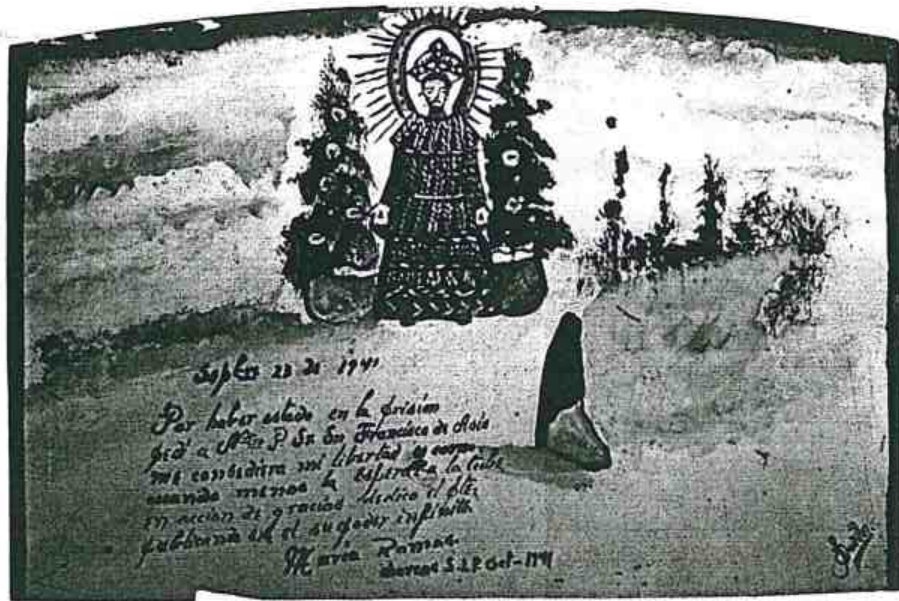 Sepbre 23 de 1941
Por haber estado en la prisión
pedí a Ntro P. Sr. Sn Francisco de Asis
me consediera mi libertad y como
cuando menos la esperaba la tube
en acción de gracias dedico el pte.
publicando así el su poder infinito
María Ramos
S.L.P. Oct-1941